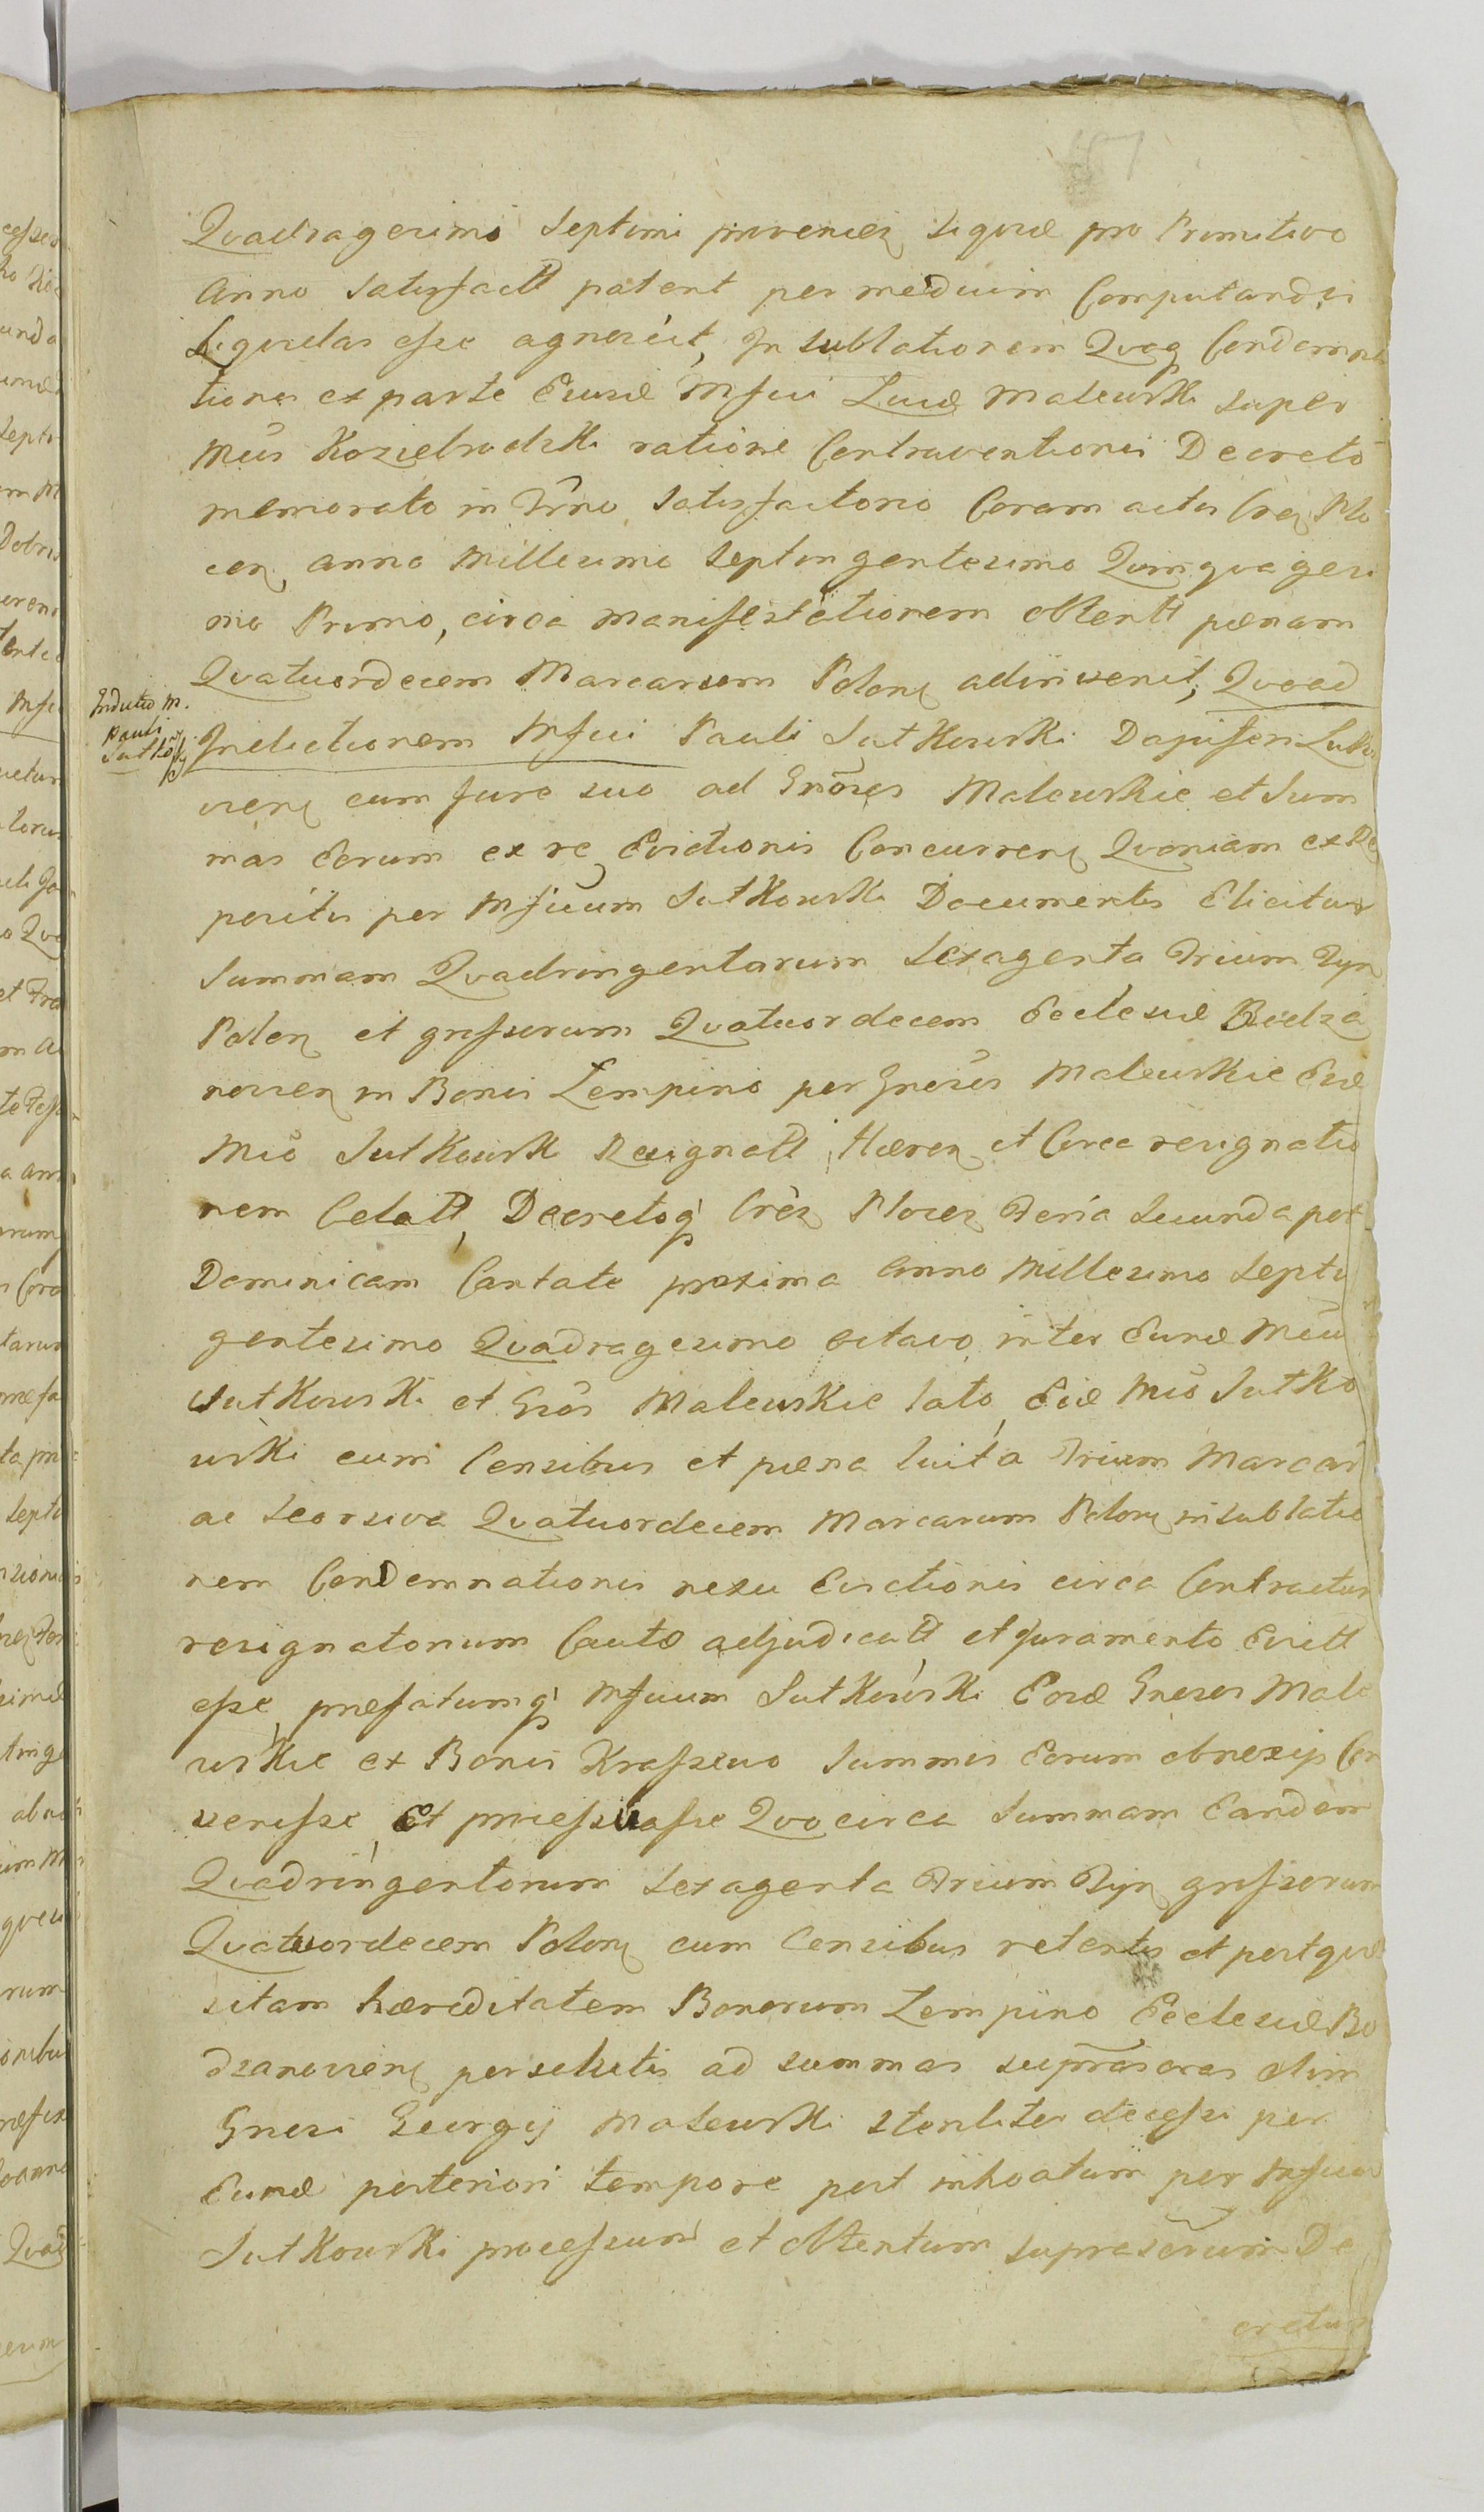 Quadragesimi Septimi provenien siquid pro Primitivo
Anno Satisfactt patent per medium Computandis
Liquidas esse agnoscit, In Sublationem Quoq Condemna
tionis ex parte Ejusd Mfici Maleuski super
Mcus Koziebrodzki ratione Contraventionis Decreto
memorato in Trno Satisfactorio Coram actis Cren Plo
cen, anno Millesimo Septingentesimo Quinquagesi
mo Primo, circa manifestationem obtentt pænam
Quatuordecem Marcarum Polon adinvenit, Quoad
Inductio M.
Pauli
Sutko
Inductionem Mfici Pauli Sutkowski Dapiferi
vien cum Jure suo ad Gnosos Maleuskie et Sum
mas Eorum ex re Evictionis Concurren Quoniam ex Re
positis per Mficum Sutkowski Documentis Elicitur
Summam Quadringentarum Sexagenta Trium
Polon et grossorum Quatuordecem Ecclesiæ Bodza
novien in Bonis Lempino per Gnosos Maleuskie
Mco Sutkowski Resignatt, Hæren et Circa resignatio
nem Celatt, Decretoq Cren Plocen Feria Secunda post
Dominicam Cantate proxima Anno Millesimo Septi
gentesimo Quadragesimo octavo inter Eund Mcu
Sutkowski et Maleuskie lato, Mco Sutko
wski cum Censibus et pæna luita Trium Marcar
ac seorsive Quatuordecem Marcarum Polon in sublatio
nem Condemnationis nexu Evictionis circa Contractus
resignatorium Cauto adjudicatt et Juramento Evictt
esse, præfatumq Mficum Sutkowski Gnosos Male
uskie ex Bonis Krassewo Summis Eorum obnoxijs Con
venisse, Et processuasse Quocirca Summam Eandem
Quadringentorum Sexagenta Trium grossorum
Quatuordecem Polon cum Censibus retentis et post quæ
sitam hæreditatem Bonorum Lempino Ecclesiæ Bo
dzanovien persolutis ad summas olim
Gnosi Georgij Maleuski steriliter decessi per
Eund posteriori tempore post inhoatum per Mficum
Sutkowski processum et obtentum De
cretum